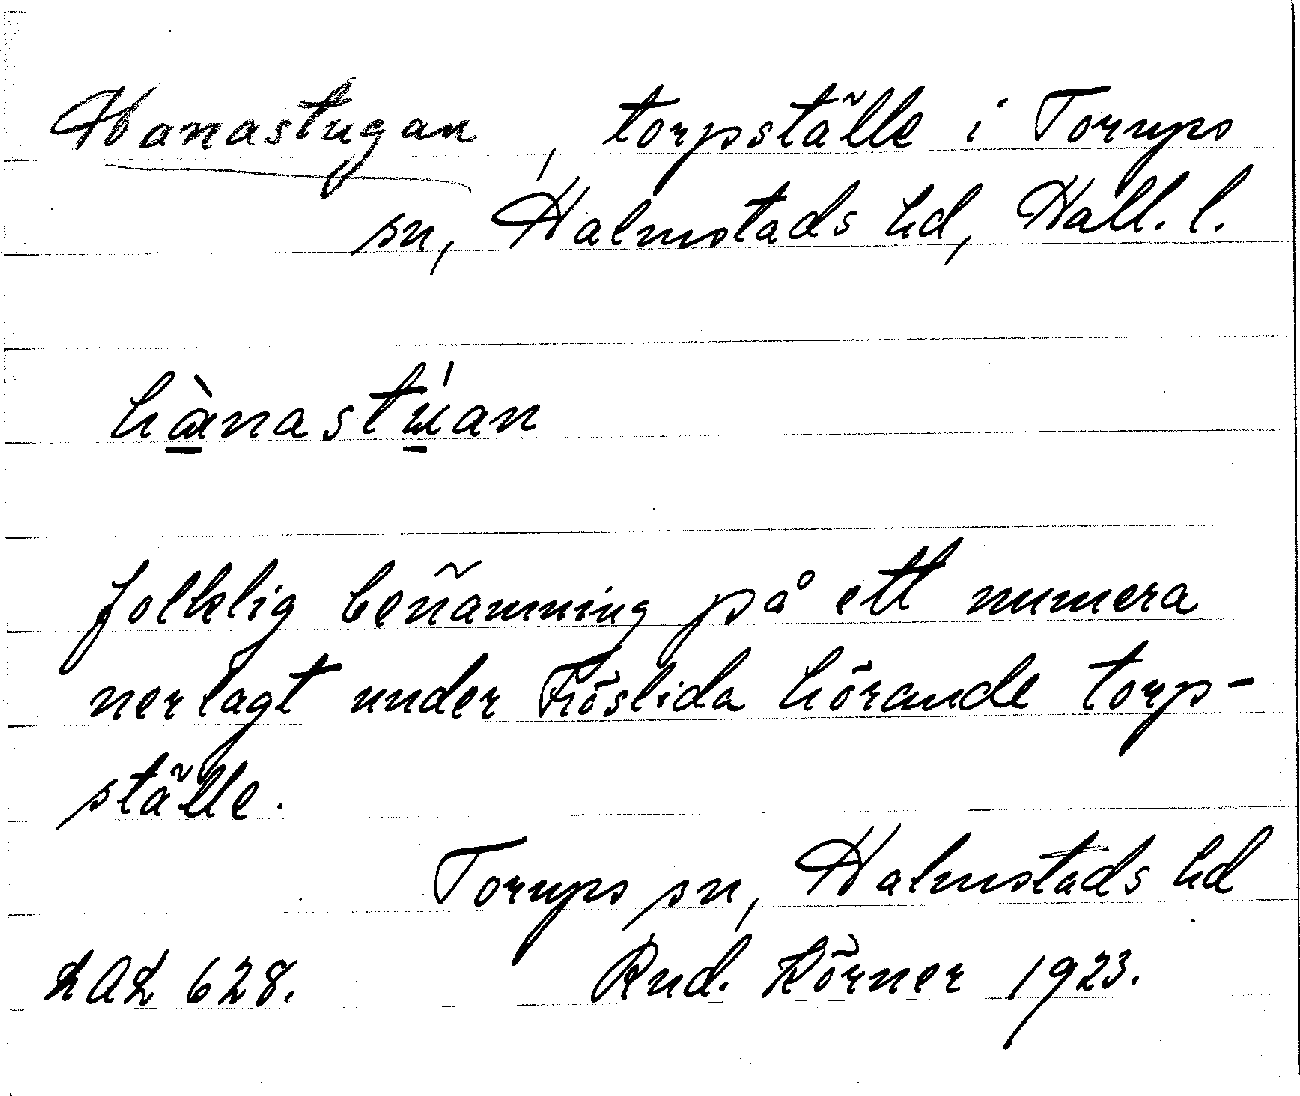 Hanastugan, torpställe i Torups
sn, Halmstads hd, Hall. l.
hànastúan
folklig benämning på ett numera
nerlagt under Fröslida hörande torp-
ställe.
Torups sn, Halmstads hd
LAL 628. Rud. Körner 1923.